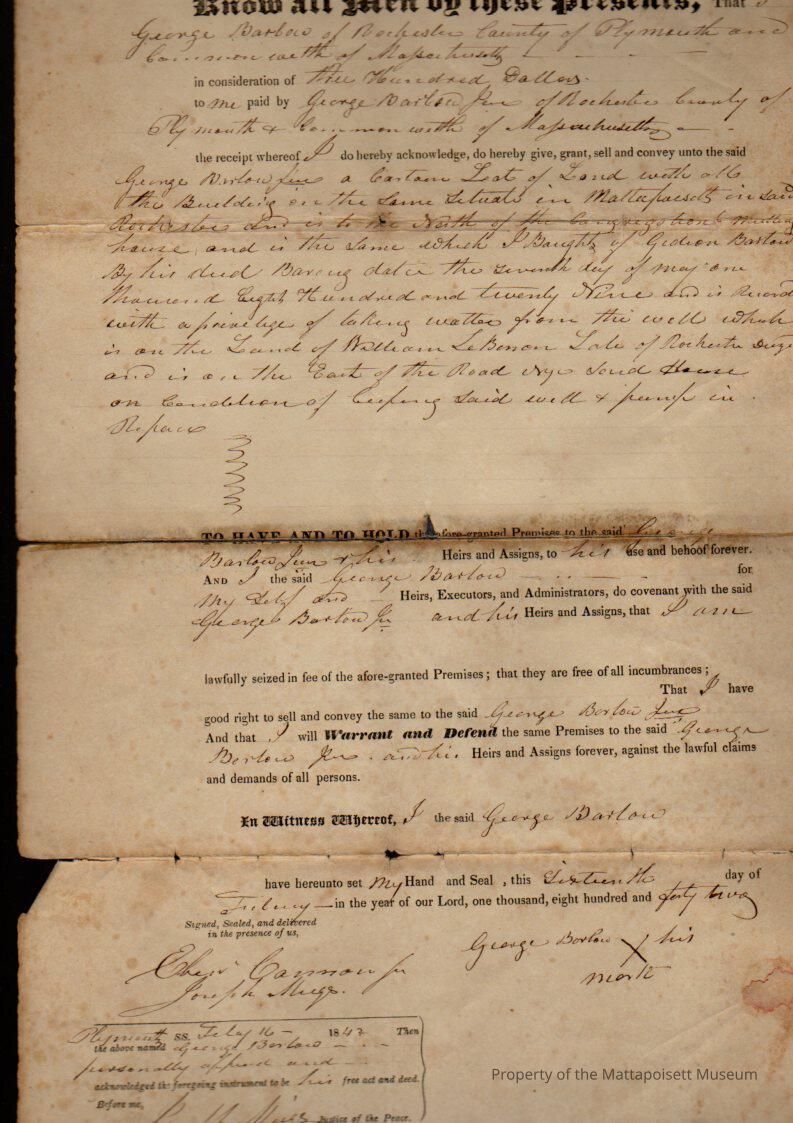 Know all Men by these Presents, That I
George Barlow of Rochester County of Plymouth and
Common welth of Massachusetts
in consideration of three Hundred Dollars
to me paid by George Barlow Jun of Rochester County of
Plymouth & Common welth of Massachusetts
the receipt whereof I do hereby acknowledge, do hereby give, grant, sell and convey unto the said
George Barlow Jun a Certain Lot of Land with all
the Building on the Same Situate in Mattapoisett in said
Rochester and is to the North of the Congregational Meeting
house and is the Same which I Baught of Gideon Barlow
By his deed Baring date the Seventh day of may one
thousand Eight Hundred and twenty Nine and is Record
with a privelege of taking watter from the well which
is on the Land of William Le Baron Late of Rochester
and is on the East of the Road Said House
on Condition of Keeping Said well & pump in
Repair
TO HAVE AND TO HOLD the afore-granted Premises to the said George
Barlow Jun & his Heirs and Assigns, to his use and behoof forever.
AND I the said George Barlow for
My Self and Heirs, Executors, and Administrators, do covenant with the said
George Barlow Jr and his Heirs and Assigns, that I am
lawfully seized in fee of the afore-granted Premises; that they are free of all incumbrances;
That I have
good right to sell and convey the same to the said George Barlow Jun
And that I will Warrant and Defend the same Premises to the said George
Barlow Jun. and his Heirs and Assigns forever, against the lawful claims
and demands of all persons.
In Witness Whereof, I the said George Barlow
have hereunto set My Hand and Seal, this Sixteenth day of
in the year of our Lord, one thousand, eight hundred and forty two
Signed, Sealed, and delivered
in the presence of us,
George Barlow X his
mark
Eben Cannon Jr
Joseph Meigs.
Plymouth SS. Feby 16 - 1842 Then
the above named George Barlow
personally appeared and
acknowledged the foregoing instrument to be his free act and deed.
Before me,
Justice of the Peace.
Property of the Mattapoisett Museum